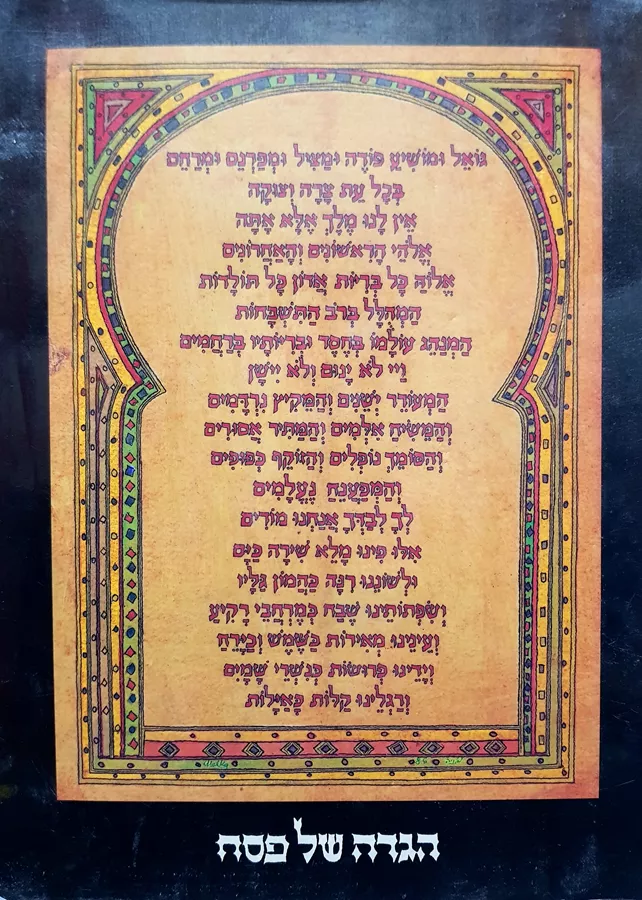 גּוֹאֵל וּמוֹשִׁיעַ פּוֹדֶה וּמַצִּיל וּמְפַרְנֵס וּמְרַחֵם
בְּכָל עֵת צָרָה וְצוּקָה
אֵין לָנוּ מֶלֶךְ אֶלָּא אַתָּה
אֱלֹהֵי הָרִאשׁוֹנִים וְהָאַחֲרוֹנִים
אֱלוֹהַּ כָּל בְּרִיּוֹת אֲדוֹן כָּל תּוֹלָדוֹת
הַמְהֻלָּל בְּרֹב הַתִּשְׁבָּחוֹת
הַמְנַהֵג עוֹלָמוֹ בְּחֶסֶד וּבְרִיּוֹתָיו בְּרַחֲמִים
וַיְיָ לֹא יָנוּם וְלֹא יִישָׁן
הַמְעוֹרֵר יְשֵׁנִים וְהַמֵּקִיץ נִרְדָּמִים
וְהַמֵּשִׂיחַ אִלְּמִים וְהַמַּתִּיר אֲסוּרִים
וְהַסּוֹמֵךְ נוֹפְלִים וְהַזּוֹקֵף כְּפוּפִים
וְהַמְּפַעֲנֵחַ נֶעֱלָמִים
לְךָ לְבַדְּךָ אֲנַחְנוּ מוֹדִים
אִלּוּ פִינוּ מָלֵא שִׁירָה כַּיָּם
וּלְשׁוֹנֵנוּ רִנָּה כַּהֲמוֹן גַּלָּיו
וְשִׂפְתוֹתֵינוּ שֶׁבַח כְּמֶרְחֲבֵי רָקִיעַ
וְעֵינֵינוּ מְאִירוֹת כַּשֶּׁמֶשׁ וְכַיָּרֵחַ
וְיָדֵינוּ פְרוּשׂוֹת כְּנִשְׁרֵי שָׁמָיִם
וְרַגְלֵינוּ קַלּוֹת כָּאַיָּלוֹת
הגדה של פסח